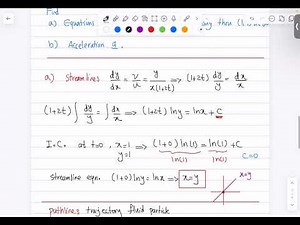 Find
a) Equations
b) Acceleration a.
a) Streamlines dy/dx = v/u = y/x(1+2t) ⟹ (1+2t) dy/y = dx/x
(1+2t) ∫ dy/y = ∫ dx/x ⟹ (1+2t) ln y = ln x + C
I.C. at t=0, x=1 y=1 ⟹ (1+0) ln(1) = ln(1) + C
ln(1) ln(1) C=0
Streamline eqn. (1+0) ln y = ln x ⟹ x=y
x=y
pathlines: trajectory fluid particle